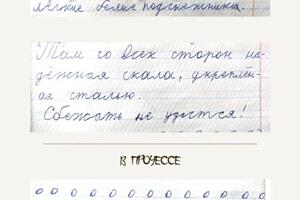 лёгкие белые подснежники.
Там со всех сторон на-
дёжная скала, укреплён-
ая сталью.
Сбежать не удастся!
В ПРОЦЕССЕ
о о о о о о о о о о о о